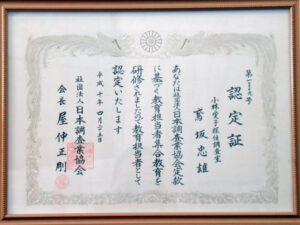 認定証
小林愛子探偵調査室
鳶坂忠雄
あなたは社団法人日本調査業協会定款
に基づく教育担当者集合教育を
研修されましたので教育担当者として
認定いたします
平成十年四月二五日
社団法人日本調査業協会
会長 屋仲正剛